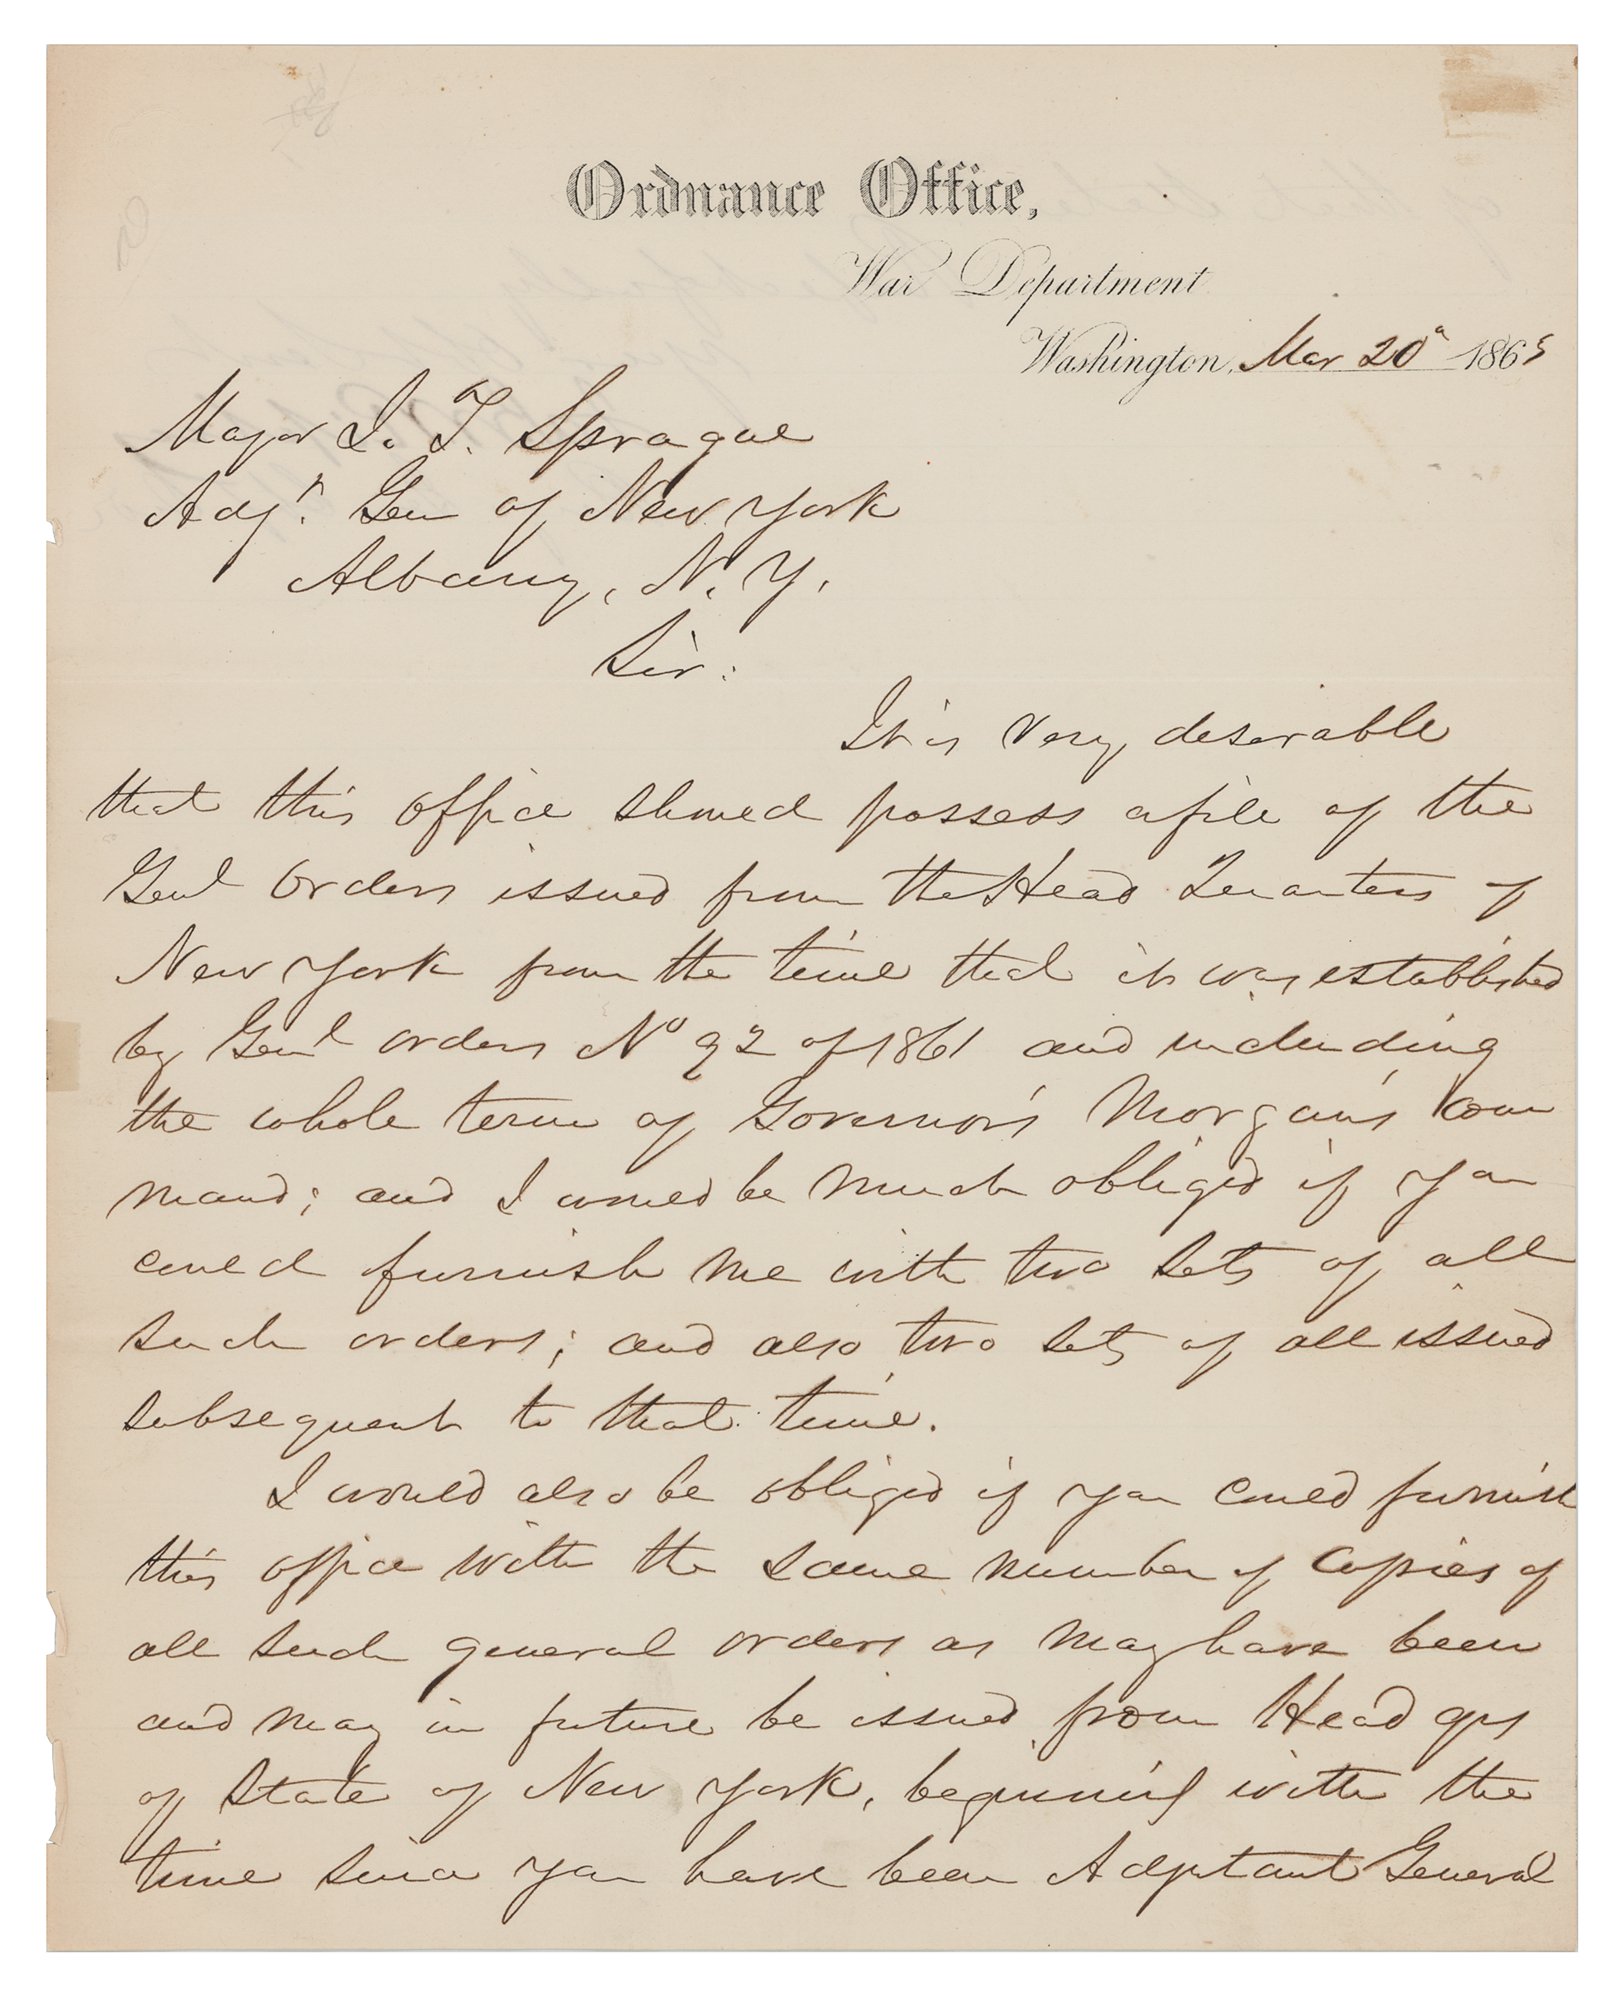 Ordnance Office,
War Department
Washington, Mar 20" 1865
Major J. T. Sprague
Adjt. Gen of New York
Albany, N. Y.
Sir:
It is very desirable
that this office should possess a file of the
Genl Orders issued from the Head Quarters of
New York from the time that it was established
by Genl orders No 92 of 1861 and including
the whole term of Governor's Morgan's com
mand; and I would be much obliged if you
could furnish me with two sets of all
such orders; and also two sets of all issued
subsequent to that time.
I would also be obliged if you could furnish
this office with the same number of copies of
all such general orders as may have been
and may in future be issued from Head qrs
of State of New York, beginning with the
time since you have been Adjutant General